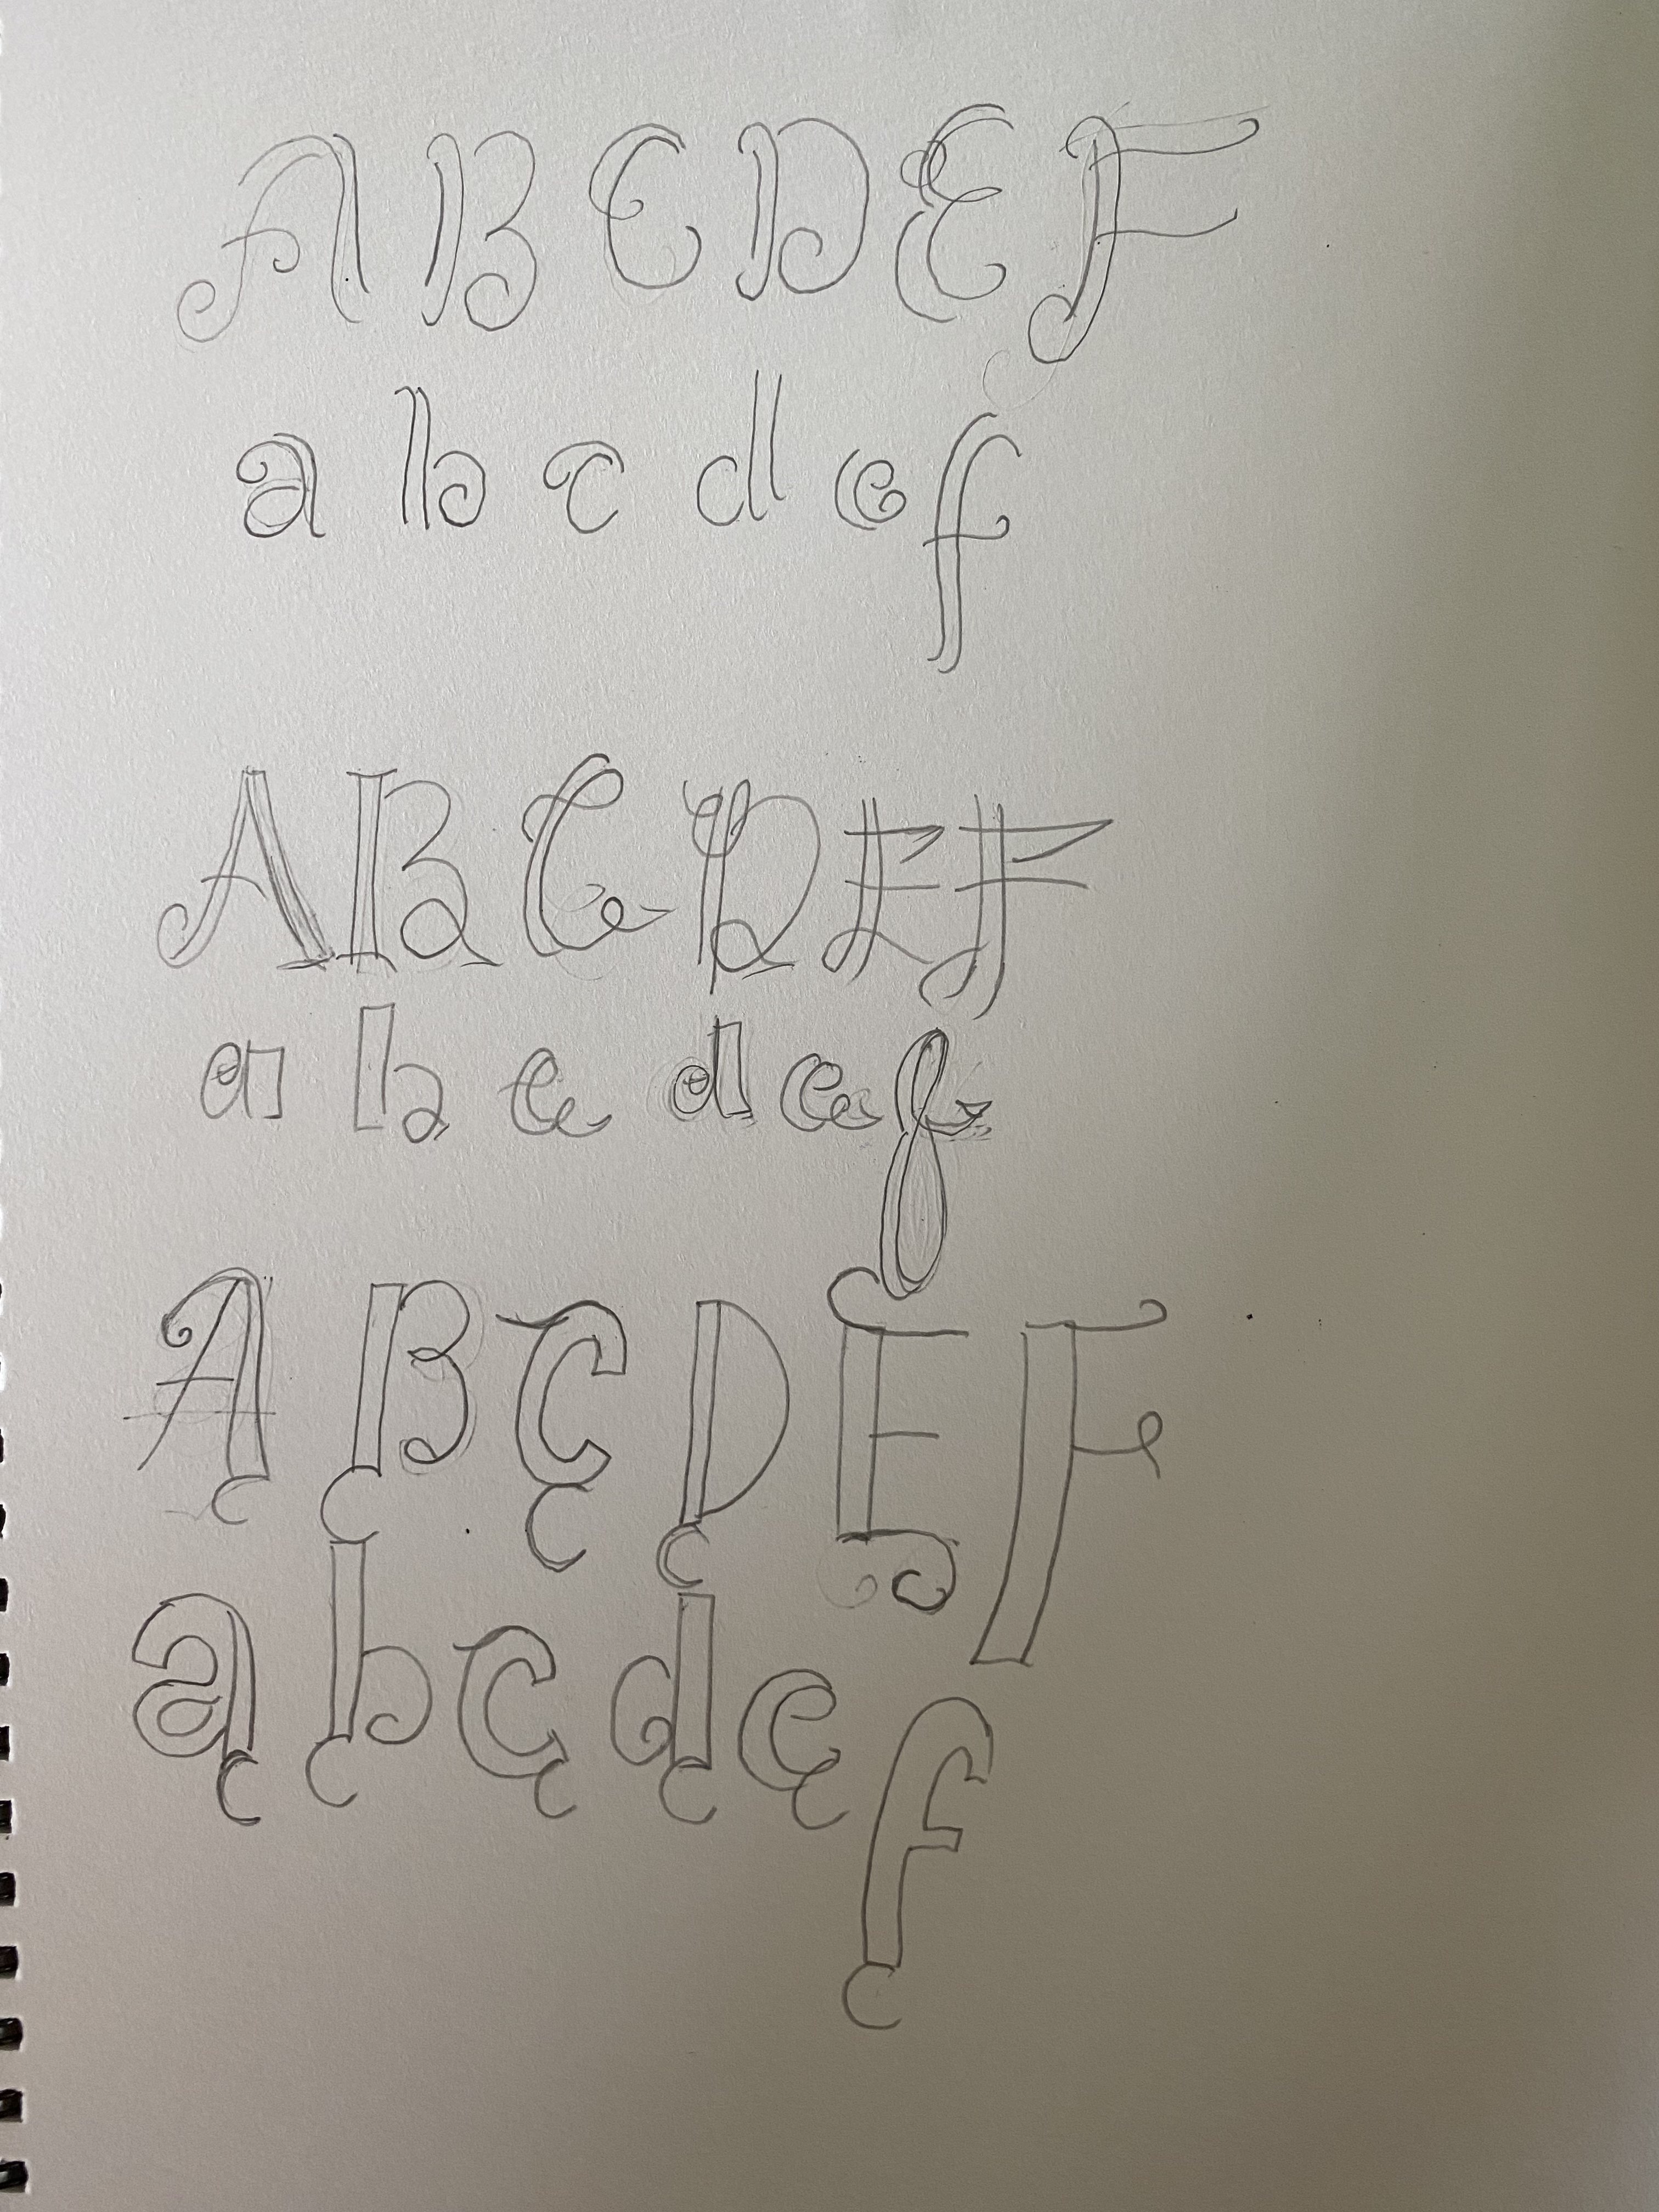 A B C D E F
a b c d e f
A B C D E F
a b c d e f
A B C D E F
a b c d e f